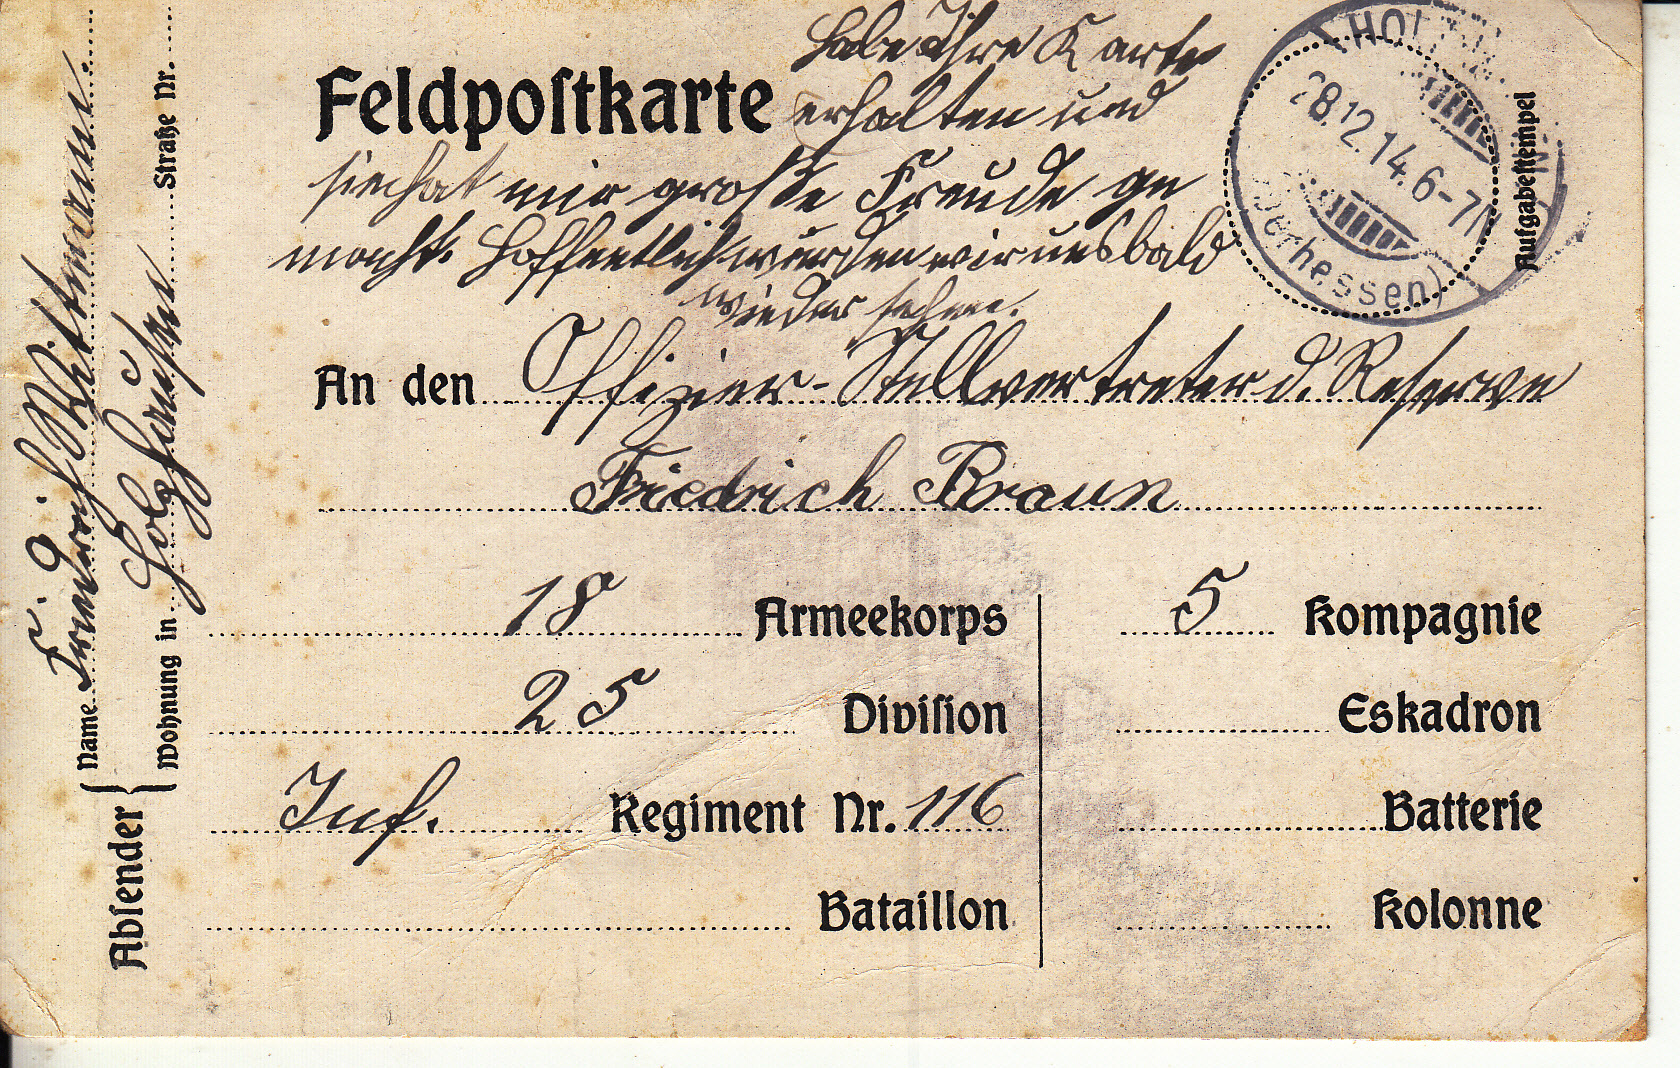 Habe Ihre Karte
Feldpostkarte erhalten und
sie hat mir große Freude ge
macht. Hoffentlich werden wir uns bald
wieder sehen.
An den Offizier-Stellvertreter d. Reserve
Friedrich Braun
18 Armeekorps
5 Kompagnie
25 Division
Eskadron
Inf. Regiment Nr. 116
Batterie
Bataillon
Kolonne
Absender
Name Friedrich Wittmann.
Wohnung in Holzhausen Straße Nr.
HOLZ
28.12.14.6-7N
(Oberhessen)
Aufgabestempel